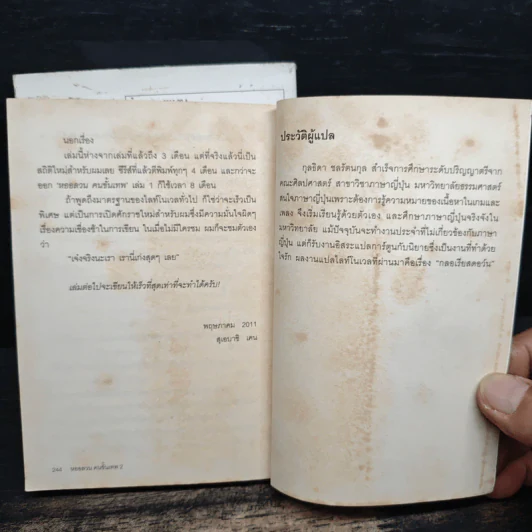 นอกเรื่อง
เล่มนี้ห่างจากเล่มที่แล้วถึง 3 เดือน แต่ที่จริงแล้วนี่เป็น
สถิติใหม่สำหรับผมเลย ซีรีส์ที่แล้วตีพิมพ์ทุกๆ 4 เดือน และกว่าจะ
ออก 'หอยสวน คนชั้นเทพ' เล่ม 1 ก็ใช้เวลา 8 เดือน
ถ้าพูดถึงมาตรฐานของไลท์โนเวลทั่วไป ก็ใช่ว่าจะเร็วเป็น
พิเศษ แต่เป็นการเปิดศักราชใหม่สำหรับผมซึ่งมีความมั่นใจผิดๆ
เรื่องความเชื่องช้าในการเขียน ในเมื่อไม่มีใครชม ผมก็จะชมตัวเอง
ว่า
"เจ๋งจริงนะเรา เรานี่เก่งสุดๆ เลย"
เล่มต่อไปจะเขียนให้เร็วที่สุดเท่าที่จะทำได้ครับ!
พฤษภาคม 2011
สุเอบาชิ เคน
244 หอยสวน คนชั้นเทพ 2
ประวัติผู้แปล
กุลธิดา ชลรัตนกุล สำเร็จการศึกษาระดับปริญญาตรีจาก
คณะศิลปศาสตร์ สาขาวิชาภาษาญี่ปุ่น มหาวิทยาลัยธรรมศาสตร์
สนใจภาษาญี่ปุ่นเพราะต้องการรู้ความหมายของเนื้อหาในเกมและ
เพลง จึงเริ่มเรียนรู้ด้วยตัวเอง และศึกษาภาษาญี่ปุ่นจริงจังใน
มหาวิทยาลัย แม้ปัจจุบันจะทำงานประจำที่ไม่เกี่ยวข้องกับภาษา
ญี่ปุ่น แต่ก็รับงานอิสระแปลการ์ตูนกับนิยายซึ่งเป็นงานที่ทำด้วย
ใจรัก ผลงานแปลไลท์โนเวลที่ผ่านมาคือเรื่อง "กลอเรียสดอว์น"